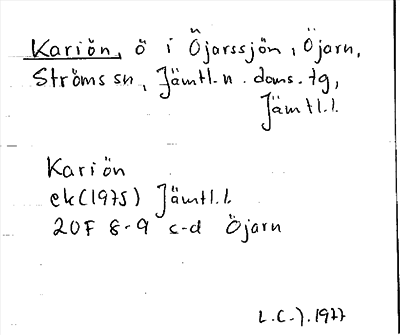 Kariön, ö i Öjarssjön, Öjarn,
Ströms sn, Jämtl. n. doms. tg,
Jämtl. l.
Kariön
ek (1975) Jämtl. l.
20F 8-9 c-d Öjarn
L.C-). 1977